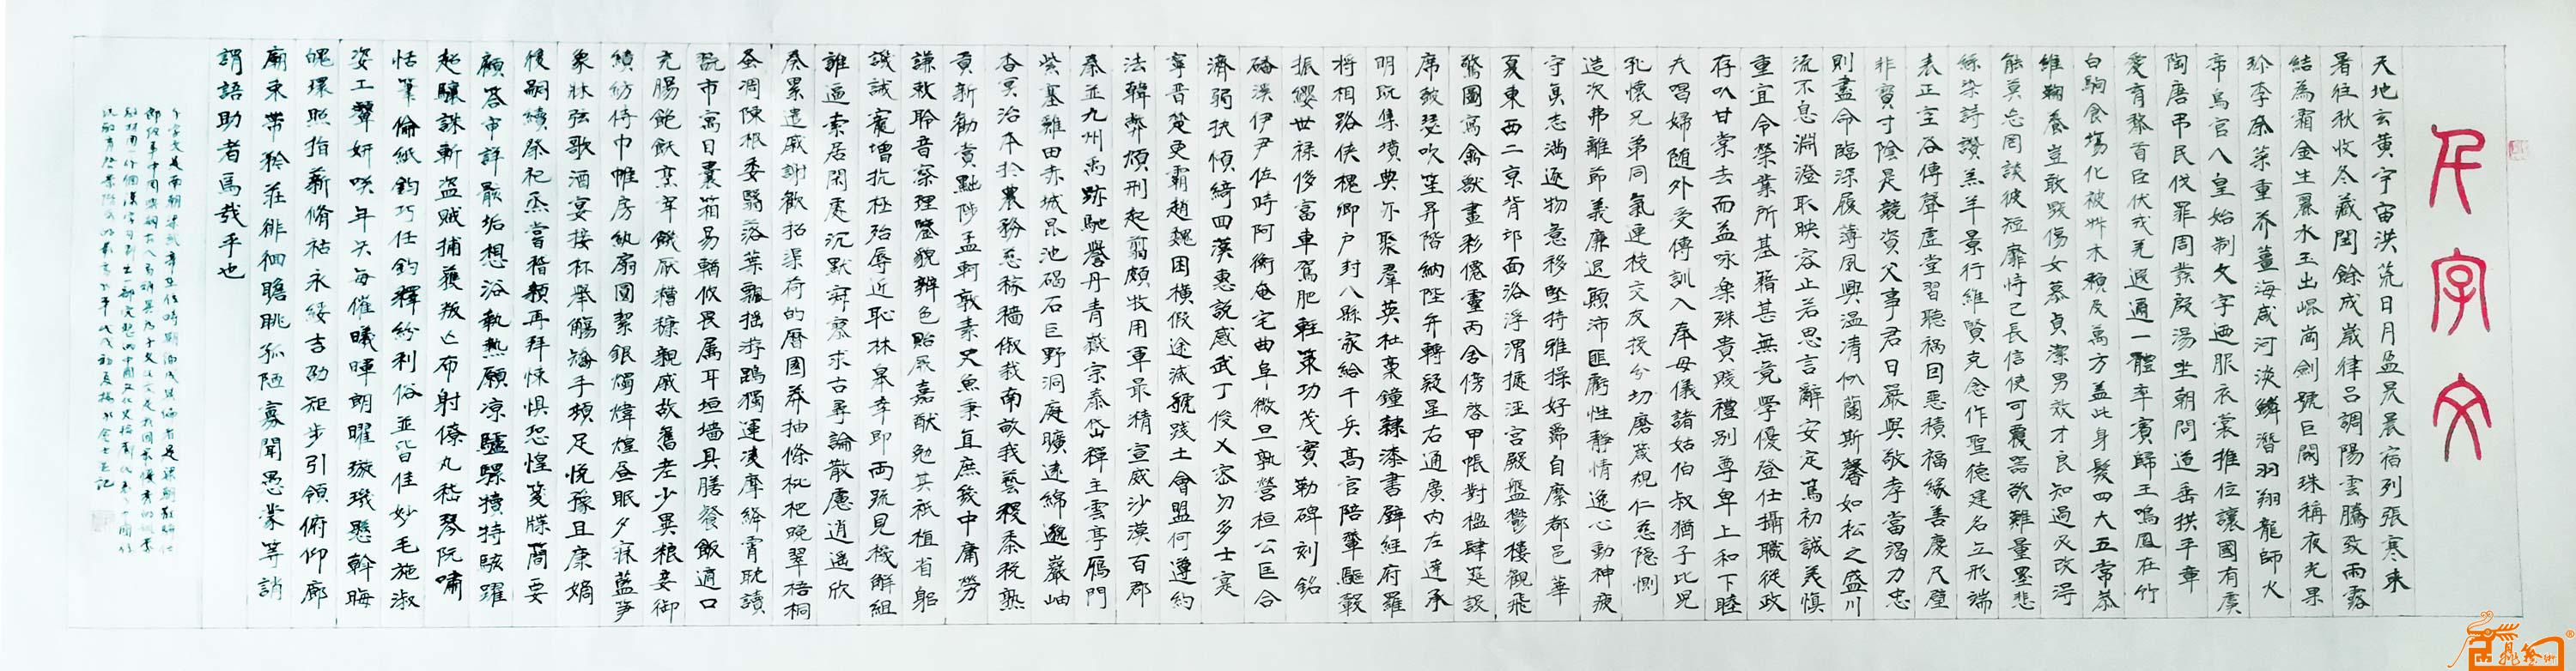 千字文
天地玄黃宇宙洪荒日月盈昃辰宿列張寒來
暑往秋收冬藏閏餘成歲律呂調陽雲騰致雨露
結為霜金生麗水玉出崐崗劍號巨闕珠稱夜光果
珍李柰菜重芥薑海咸河淡鱗潛羽翔龍師火
帝鳥官人皇始制文字迺服衣裳推位讓國有虞
陶唐弔民伐罪周發殷湯坐朝問道垂拱平章
愛育黎首臣伏戎羌遐邇一體率賓歸王鳴鳳在竹
白駒食場化被草木賴及萬方蓋此身髮四大五常恭
維鞠養豈敢毀傷女慕貞潔男效才良知過必改得
能莫忘罔談彼短靡恃己長信使可覆器欲難量墨悲
絲染詩讚羔羊景行維賢克念作聖德建名立形端
表正空谷傳聲虛堂習聽禍因惡積福緣善慶尺璧
非寶寸陰是競資父事君日嚴與敬孝當竭力忠
則盡命臨深履薄夙興溫凊似蘭斯馨如松之盛川
流不息淵澄取映容止若思言辭安定篤初誠美慎
重宜令榮業所基籍甚無竟學優登仕攝職從政
存以甘棠去而益詠樂殊貴賤禮別尊卑上和下睦
夫唱婦随外受傅訓入奉母儀諸姑伯叔猶子比兒
孔懷兄弟同氣連枝交友投分切磨箴規仁慈隱惻
造次弗離節義廉退顛沛匪虧性靜情逸心動神疲
守真志滿逐物意移堅持雅操好爵自縻都邑華
夏東西二京背邙面洛浮渭據涇宮殿盤鬱樓觀飛
驚圖寫禽獸畫彩僊靈丙舍傍啓甲帳對楹肆筵設
席鼓瑟吹笙昇階納陛弁轉疑星右通廣內左達承
明既集墳典亦聚羣英杜稾鐘隸漆書壁經府羅
將相路俠槐卿户封八縣家給千兵高官陪輦驅轂
振纓世祿侈富車駕肥輕策功茂實勒碑刻銘
磻溪伊尹佐時阿衡奄宅曲阜微旦孰營桓公匡合
濟弱扶傾綺四漢惠說感武丁俊乂密勿多士寔
寧晉楚更霸趙魏困橫假途滅虢踐土會盟何遵約
法韓弊煩刑起翦頗牧用軍最精宣威沙漠百郡
秦並九州禹跡馳譽丹青嶽宗泰岱禪主雲亭鴈門
紫塞雞田赤城昆池碣石巨野洞庭曠遠綿邈巖岫
杳冥治本於農務茲稼穡俶我南畝我藝稷黍稅熟
貢新勸賞黜陟孟軻敦素史魚秉直庶幾中庸勞
謙敕聆音察理鑒貌辨色貽厥嘉猷勉其祇植省躬
譏誡寵增抗極殆辱近恥林皋幸即兩疏見機解組
誰逼索居閑處沉默寂寥求古尋論散慮逍遙欣
奏累遣慼謝歡招渠荷的歷園莽抽條枇杷晚翠梧桐
蚤凋陳根委翳落葉飄搖游鵾獨運凌摩絳霄耽讀
翫市寓目囊箱易輶攸畏属耳垣墙具膳餐飯適口
充腸飽飫烹宰饑厭糟糠親戚故舊老少異糧妾御
績紡侍巾帷房紈扇圓絜銀燭煒煌晝眠夕寐藍筍
象牀弦歌酒宴接杯舉觴矯手頓足悅豫且康嫡
後嗣續祭祀烝嘗稽顙再拜悚懼恐惶箋牒簡要
顧答审詳骸垢想浴執熱願凉驢騾犢特駭躍
超驤誅斬盜賊捕獲叛亡布射僚丸嵇琴阮嘯
恬筆倫紙鈞巧任鈞釋紛利俗並皆佳妙毛施淑
姿工顰妍咲年矢每催曦暉朗曜璇璣懸斡晦
魄環照指薪脩祜永綏吉劭矩步引領俯仰廊
廟束帶矜莊徘徊瞻眺孤陋寡聞愚蒙等誚
謂語助者焉哉乎也